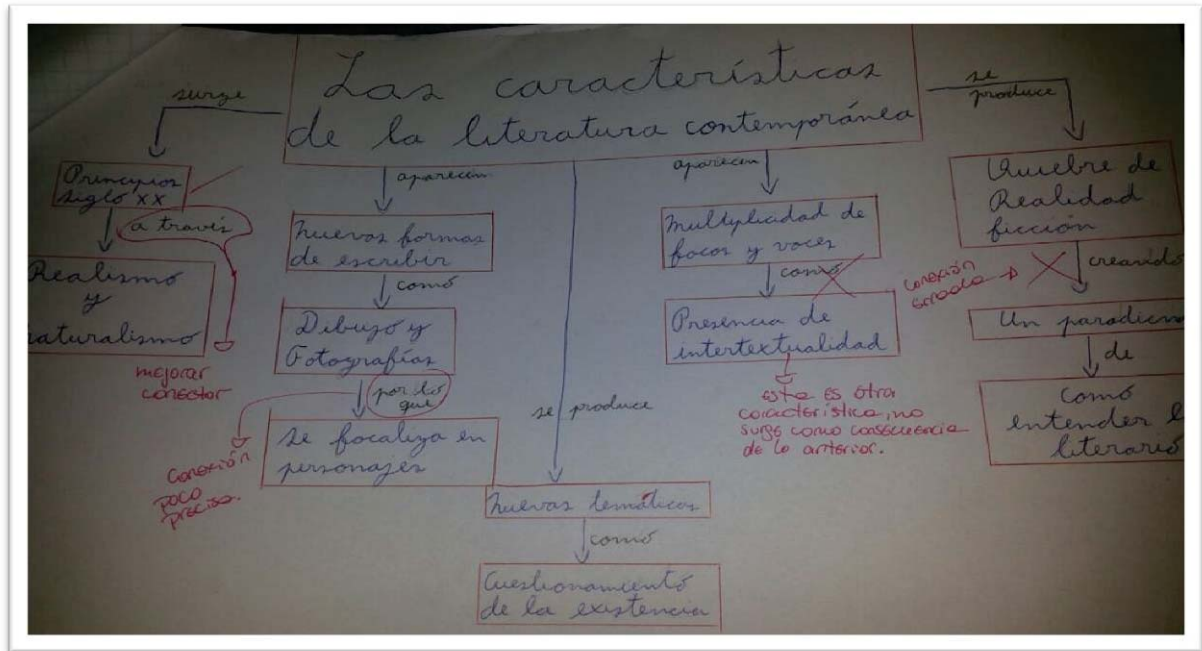 Las características
de la literatura contemporánea
surge
Principios
siglo XX
a través
Realismo
y
naturalismo
mejorar
conector
aparecen
nuevas formas
de escribir
como
Dibujo y
Fotografías
por lo
que
se focaliza en
personajes
Conexión
poco
precisa.
se produce
nuevas temáticas
como
Cuestionamiento
de la existencia
aparecen
Multiplicidad de
focos y voces
como
Presencia de
intertextualidad
esta es otra
característica, no
surge como consecuencia
de lo anterior.
se
produce
Quiebre de
Realidad
ficción
conexión
errada
creando
Un paradigm
de
como
entender l
literario